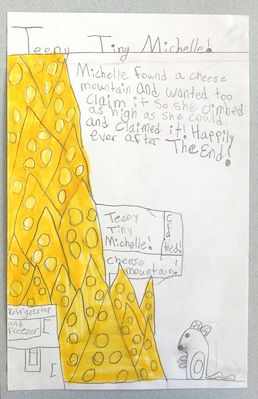 Teeny Tiny Michelle!
Michelle found a cheese
mountain and wanted too
claim it so she climbed
as high as she could.
and claimed it! Happily
ever after The End!
Teeny
Tiny
Michelle!
Claimed!
cheese
mountain!
Refrigerator
and
freezer